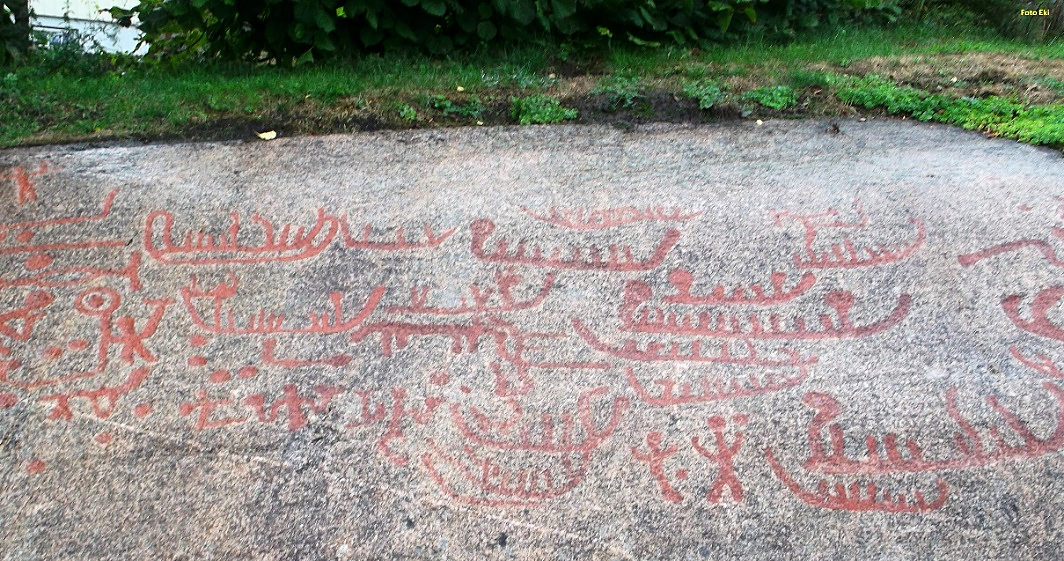 Foto Eki